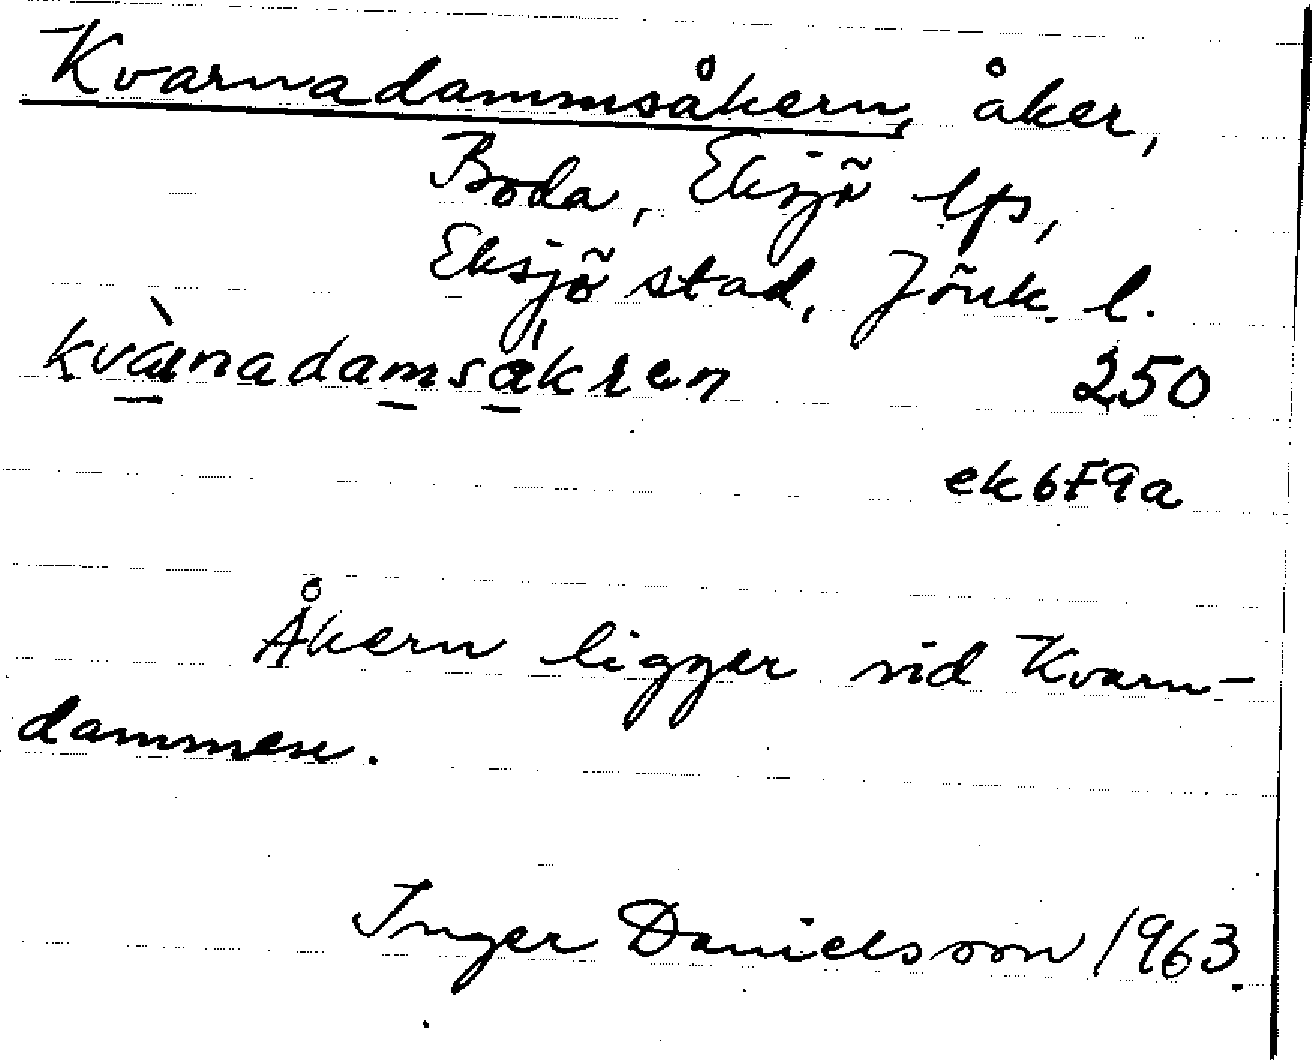 Kvarnadammsåkern, åker,
Boda, Eksjö lfs,
Eksjö stad, Jönk. l.
kvànadamsákren 250
ek 6F9a
Åkern ligger vid Kvarn-
dammen.
Inger Danielsson 1963